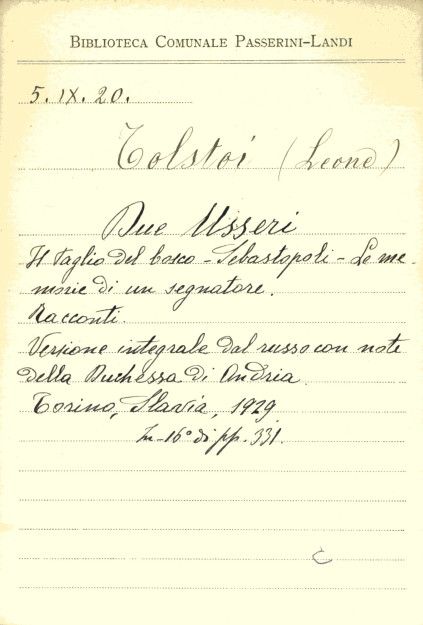 BIBLIOTECA COMUNALE PASSERINI-LANDI
5. IX. 20.
Tolstoi (Leone)
Due Usseri
Il taglio del bosco - Sebastopoli - Le me-
morie di un segnatore.
Racconti.
Versione integrale dal russo con note
della Duchessa di Andria.
Torino, Slavia, 1929
In-16° di pp. 331.
C